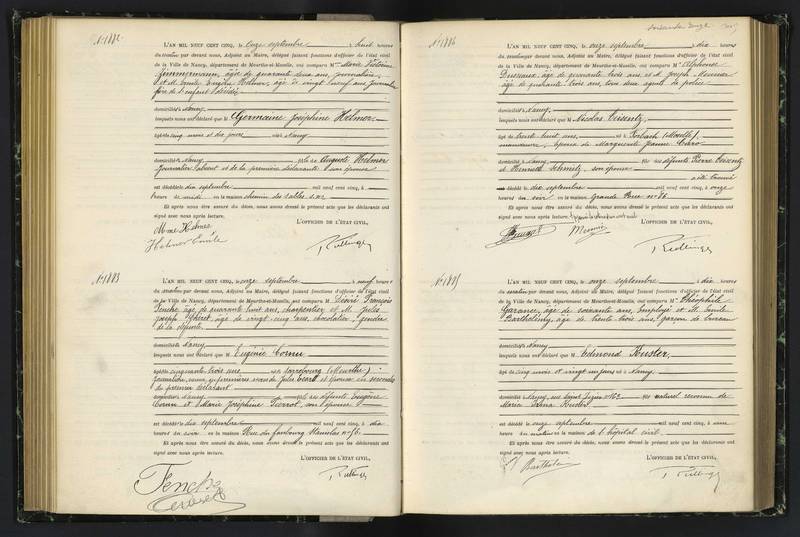 N° 1882
L'AN MIL NEUF CENT CINQ, le onze septembre, à huit heures
du matin par devant nous, Adjoint au Maire, délégué faisant fonctions d'officier de l'état civil
de la Ville de Nancy, département de Meurthe-et-Moselle, ont comparu M Marie Victorine
Zimmermann, âgée de quarante deux ans, journalière,
et M. Emile Helmer, âgé de vingt neuf ans, journalier
frère de l'enfant décédé
domiciliés à Nancy
lesquels nous ont déclaré que M Germaine Joséphine Helmer
âgée cinq mois et dix jours née à Nancy
domiciliée à Nancy fille de Auguste Helmer
journalier absent et de la première déclarante son épouse
est décédée le dix septembre mil neuf cent cinq, à
heures de midi en la maison chemin des sables
Et après nous être assuré du décès, nous avons dressé le présent acte que les déclarants ont
signé avec nous après lecture.
L'OFFICIER DE L'ÉTAT CIVIL,
Mme Helmer
Helmer Emile
N° 1883
L'AN MIL NEUF CENT CINQ, le onze septembre, à neuf heures
du matin par devant nous, Adjoint au Maire, délégué faisant fonctions d'officier de l'état civil
de la Ville de Nancy, département de Meurthe-et-Moselle, ont comparu M Désiré François
Fenche, âgé de quarante huit ans, charpentier et M. Jules
Joseph âgé de vingt cinq ans, chocolatier, gendre
de la défunte
domiciliés à Nancy
lesquels nous ont déclaré que M Eugénie Cornu
âgée cinquante trois ans, née à Sarrebourg (Meurthe)
journalière, veuve en premières noces de Jules et épouse en secondes
du premier déclarant
domiciliée à Nancy fille des défunts Eugène
Cornu et Marie Joséphine Pierrot, son épouse
est décédée le dix septembre mil neuf cent cinq, à dix
heures du soir en la maison Rue du faubourg Stanislas n° 16
Et après nous être assuré du décès, nous avons dressé le présent acte que les déclarants ont
signé avec nous après lecture.
L'OFFICIER DE L'ÉTAT CIVIL,
Fenche
N° 1884
L'AN MIL NEUF CENT CINQ, le onze septembre, à dix heures
du matin par devant nous, Adjoint au Maire, délégué faisant fonctions d'officier de l'état civil
de la Ville de Nancy, département de Meurthe-et-Moselle, ont comparu M Alphonse
âgé de quarante trois ans et Joseph Meunier
âgé de quarante trois ans, tous deux agents de police
domiciliés à Nancy
lesquels nous ont déclaré que M Nicolas Veisentz
âgé de trente huit ans, né à Forbach (Moselle)
manoeuvre, époux de Marguerite Jeanne Caro
domicilié à Nancy fils des défunts Pierre Veisentz
et Henriette Schmitz, son épouse
a été trouvé
est décédé le dix septembre mil neuf cent cinq, à onze
heures du soir en la maison Grande Rue n° 86
Et après nous être assuré du décès, nous avons dressé le présent acte que les déclarants ont
signé avec nous après lecture.
L'OFFICIER DE L'ÉTAT CIVIL,
Meunier
N° 1885
L'AN MIL NEUF CENT CINQ, le onze septembre, à dix heures
du matin par devant nous, Adjoint au Maire, délégué faisant fonctions d'officier de l'état civil
de la Ville de Nancy, département de Meurthe-et-Moselle, ont comparu M Théophile
Garance, âgé de soixante ans, employé et M. Emile
Barthélemy, âgé de trente trois ans, garçon de bureau
domiciliés à Nancy
lesquels nous ont déclaré que M Edmond Buster
âgé cinq mois et vingt un jours né à Nancy
domicilié à Nancy, rue Saint Dizier n° 162 fils naturel reconnu de
Maria Buster
est décédé le onze septembre mil neuf cent cinq, à une
heure du matin en la maison de l'hôpital civil
Et après nous être assuré du décès, nous avons dressé le présent acte que les déclarants ont
signé avec nous après lecture.
L'OFFICIER DE L'ÉTAT CIVIL,